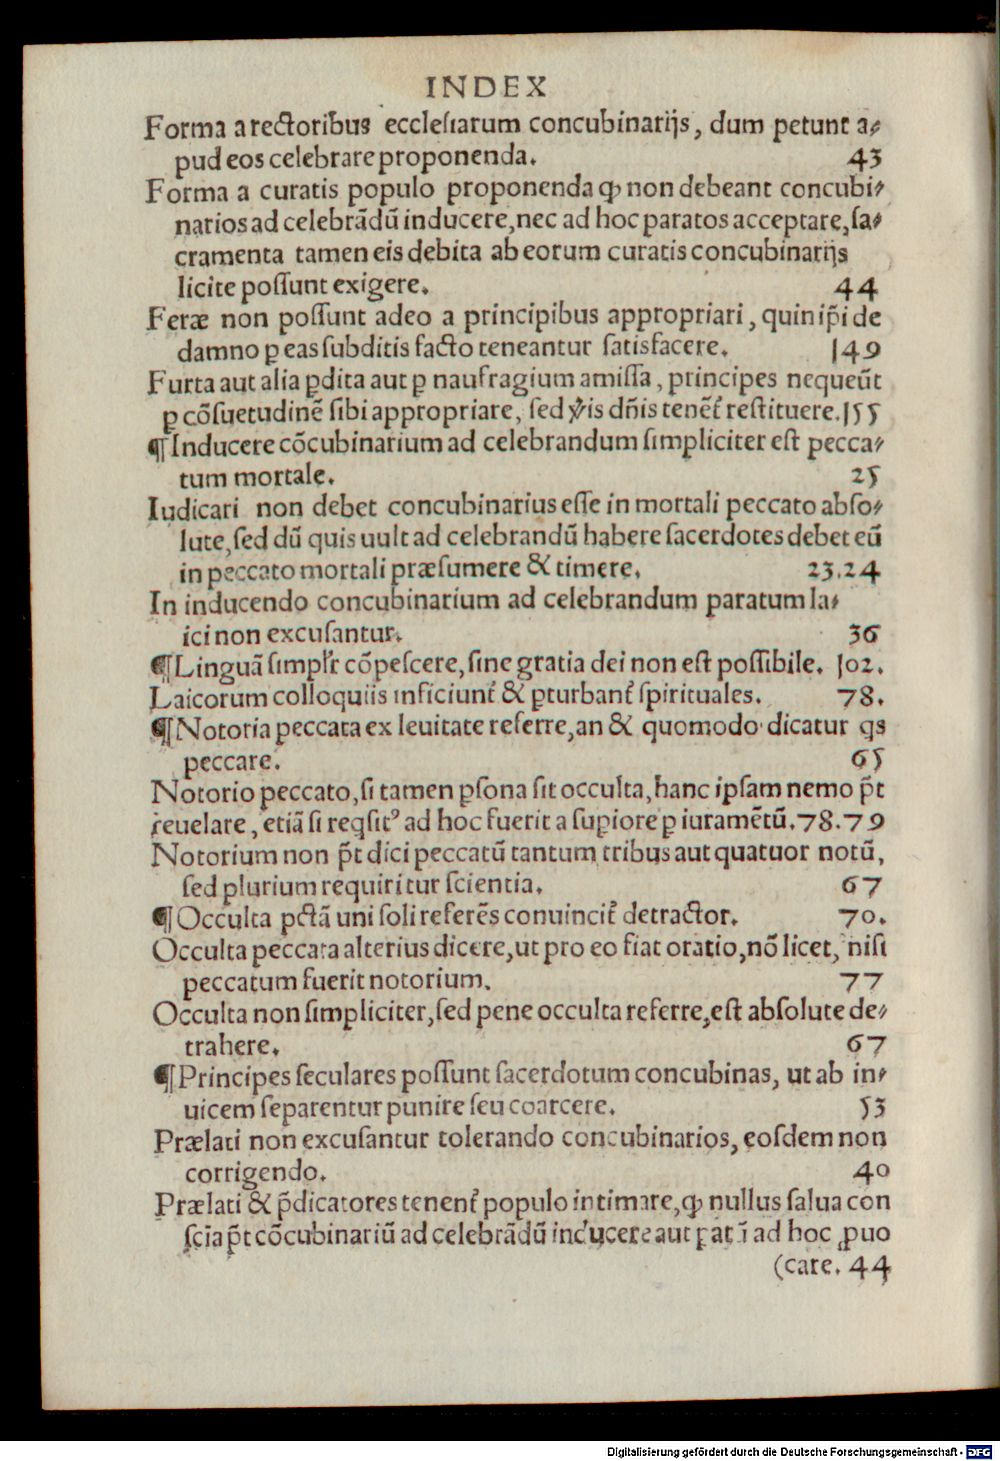 INDEX
Forma a rectoribus ecclesiarum concubinarijs, dum petunt a⸗
pud eos celebrare proponenda. 43
Forma a curatis populo proponenda ꝙ non debeant concubi⸗
narios ad celebrãdũ inducere, nec ad hoc paratos acceptare, sa⸗
cramenta tamen eis debita ab eorum curatis concubinarijs
licite possunt exigere. 44
Feræ non possunt adeo a principibus appropriari, quin ip̃i de
damno ꝑ eas subditis facto teneantur satisfacere. 149
Furta aut alia ꝑdita aut ꝑ naufragium amissa, principes nequeũt
ꝑ cõsuetudinẽ sibi appropriare, sed ꝟis dñis tenẽt᷑ restituere. 155
¶ Inducere cõcubinarium ad celebrandum simpliciter est pecca⸗
tum mortale. 25
Iudicari non debet concubinarius esse in mortali peccato abso⸗
lute, sed dũ quis uult ad celebrandũ habere sacerdotes debet eũ
in peccato mortali præsumere & timere. 23.24
In inducendo concubinarium ad celebrandum paratum la⸗
ici non excusantur. 36
¶ Linguã simpl'r cõpescere, sine gratia dei non est possibile. 102.
Laicorum colloquiis inficiunt᷑ & ꝑturbant᷑ spirituales. 78.
¶ Notoria peccata ex leuitate referre, an & quomodo dicatur qs
peccare. 65
Notorio peccato, si tamen ꝑsona sit occulta, hanc ipsam nemo p̃t
reuelare, etiã si reqsitꝰ ad hoc fuerit a supiore ꝑ iuramẽtũ. 78.79
Notorium non p̃t dici peccatũ tantum tribus aut quatuor notũ,
sed plurium requiritur scientia. 67
¶ Occulta pctã uni soli referẽs conuincit᷑ detractor. 70.
Occulta peccata alterius dicere, ut pro eo fiat oratio, nõ licet, nisi
peccatum fuerit notorium. 77
Occulta non simpliciter, sed pene occulta referre, est absolute de⸗
trahere. 67
¶ Principes seculares possunt sacerdotum concubinas, ut ab in⸗
uicem separentur punire seu coarcere. 53
Prælati non excusantur tolerando concubinarios, eosdem non
corrigendo. 40
Prælati & p̃dicatores tenent᷑ populo intimare, ꝙ nullus salua con
sciã p̃t cõcubinariũ ad celebrãdũ inducere aut ꝑatũ ad hoc ꝓuo
(care. 44
Digitalisierung gefördert durch die Deutsche Forschungsgemeinschaft - DFG